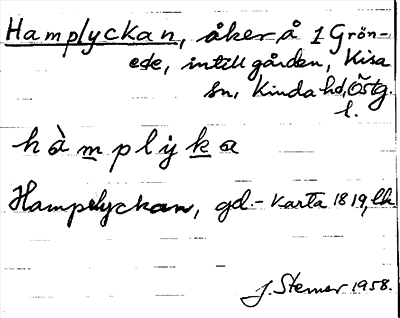 Hamplyckan, åker å 1 Grön-
ede, intill gården, Kisa
sn, Kinda hd, Östg.
l.
hàmplyka
Hampelyckan, gd.- Karta 1819, lk
J. Sterner 1958.